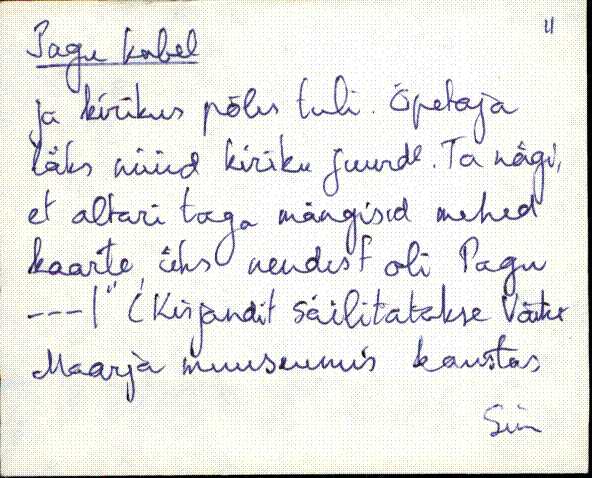 11
Pagu kabel
ja kirikus põles tuli. Õpetaja
läks nüüd kiriku juurde. Ta nägi,
et altari taga mängisid mehed
kaarte, üks nendest oli Pagu
---|" (Kirjandit säilitatakse Väike
Maarja muuseumis kaustas